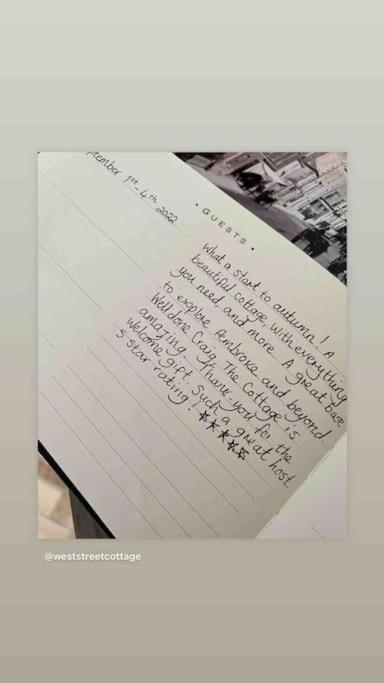 September 1st - 4th 2022
• GUESTS •
What a start to autumn! A
beautiful cottage with everything
you need and more. A great base
to explore Pembroke and beyond
Well done Craig. The Cottage is
amazing. Thank-you for the
welcome gift. Such a great host.
5 star rating! ☆☆☆☆☆
@weststreetcottage